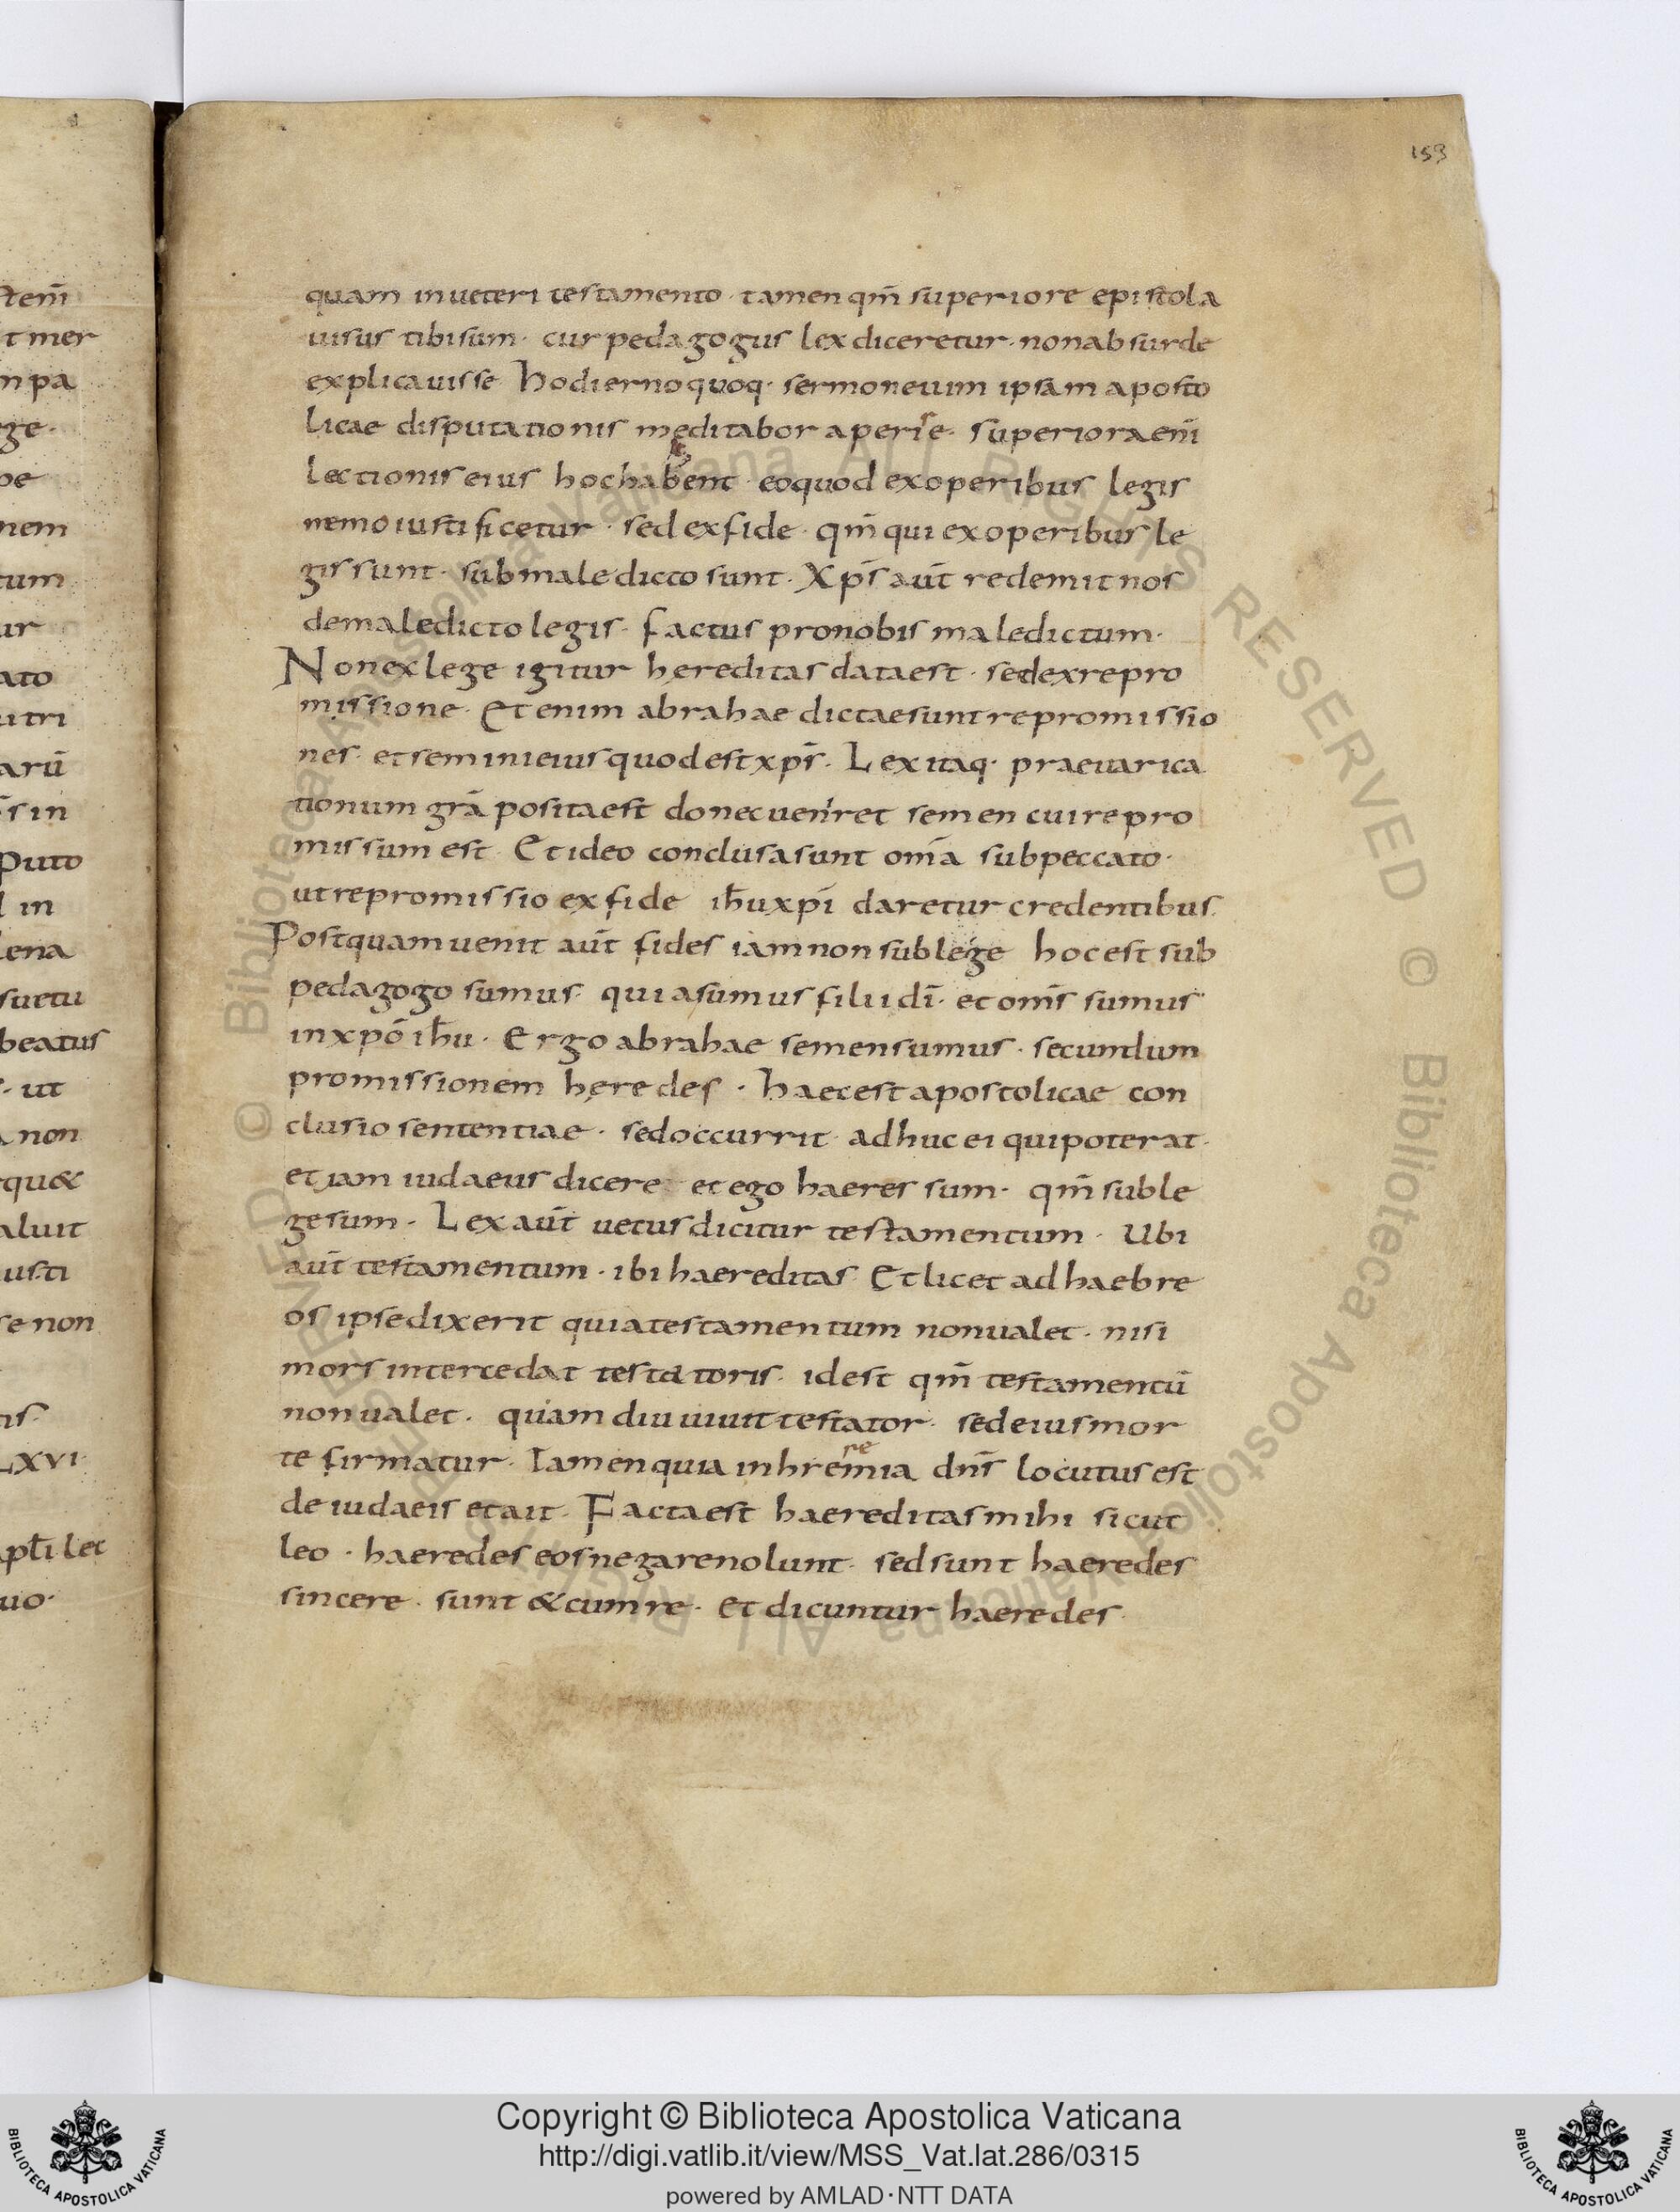 153
quam inueteri testamento · tamen qm̄ superiore epistola
uisus tibi sum · cur pedagogus lex diceretur · non absurde
explicauisse hodierno quoq· sermone uim ipsam aposto
licae disputationis meditabor aperire · superiora eni̅
lectionis eius hoc habent · eo quod ex operibus legis
nemo iustificetur · sed ex fide · qm̄ qui ex operibus le
gis sunt · sub maledicto sunt · Xp̄s aut̄ redemit nos
de maledicto legis · factus pro nobis maledictum ·
Non ex lege igitur hereditas data est · sed ex repro
missione · Et enim abrahae dictae sunt repromissio
nes · et semini eius quod est xp̄s · Lex itaq· praeuarica
tionum gr̄a posita est donec ueniret semen cui repro
missum est · Et ideo conclusa sunt om̄a sub peccato ·
ut repromissio ex fide ih̄u xp̄i daretur credentibus ·
Postquam uenit aut̄ fides iam non sub lege hoc est sub
pedagogo sumus · quia sumus filii dī · et om̄s sumus
in xp̄o ih̄u · Ergo abrahae semen sumus · secundum
promissionem heredes · haec est apostolicae con
clusio sententiae · sed occurrit adhuc ei qui poterat ·
etiam iudaeus dicere et ego haeres sum · qm̄ sub le
ge sum · Lex aut̄ uetus dicitur testamentum · Ubi
aut̄ testamentum · ibi haereditas · Et licet ad haebre
os ipse dixerit quia testamentum non ualet · nisi
mors intercedat testatoris · id est qm̄ testamentū
non ualet · quam diu uiuit testator · sed eius mor
te firmatur · Tamen quia in hieremia dn̄s locutus est
de iudaeis et ait · Facta est haereditas mihi sicut
leo · haeredes eos negare nolunt · sed sunt haeredes
sincere · sunt & cum re · et dicuntur haeredes ·
Copyright © Biblioteca Apostolica Vaticana
http://digi.vatlib.it/view/MSS_Vat.lat.286/0315
powered by AMLAD·NTT DATA